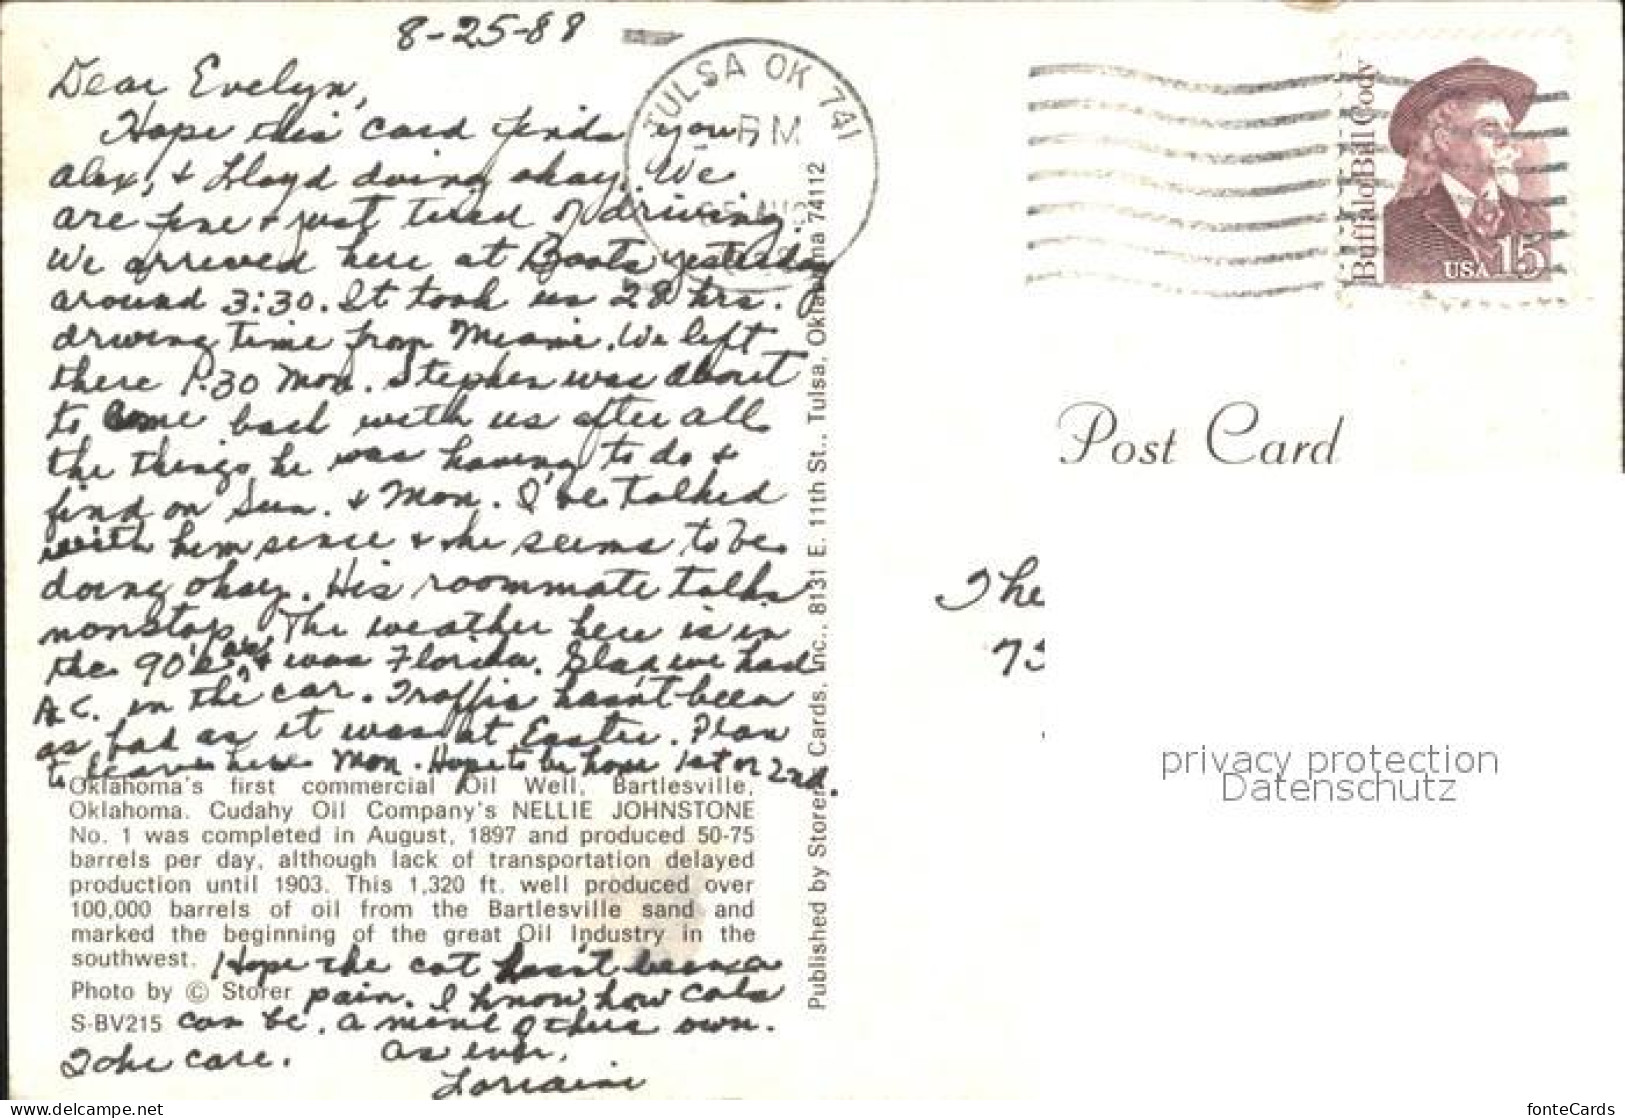 8-25-88
Dear Evelyn,
Hope this card finds you,
Alex, & Lloyd doing okay. We
are fine & just tired of driving.
We arrived here at Boots yesterday
around 3:30. It took us 28 hrs.
driving time from Miami. We left
there P.30 Mon. Stephen was about
to come back with us after all
the things he was having to do &
find on Sun. & Mon. I've talked
with him since & he seems to be
doing okay. His roommate talks
nonstop. The weather here is in
the 90's & was Florida. Glad we had
A.C. in the car. Traffic hasn't been
as bad as it was at Easter. Plan
to leave here Mon. Hope to be home 1st or 2nd.
Oklahoma's first commercial Oil Well, Bartlesville,
Oklahoma. Cudahy Oil Company's NELLIE JOHNSTONE
No. 1 was completed in August, 1897 and produced 50-75
barrels per day, although lack of transportation delayed
production until 1903. This 1,320 ft. well produced over
100,000 barrels of oil from the Bartlesville sand and
marked the beginning of the great Oil Industry in the
southwest.
Hope the cat hasn't been a
Photo by © Storer
pain. I know how cats
S-BV215
can be. a mind of their own.
Take care. As ever,
Lorraine
Published by Storer Cards, Inc., 8131 E. 11th St., Tulsa, Oklahoma 74112
TULSA OK 741
PM
Buffalo Bill Cody
USA 15
Post Card
The
73
privacy protection
Datenschutz
delcampe.net
fonteCards